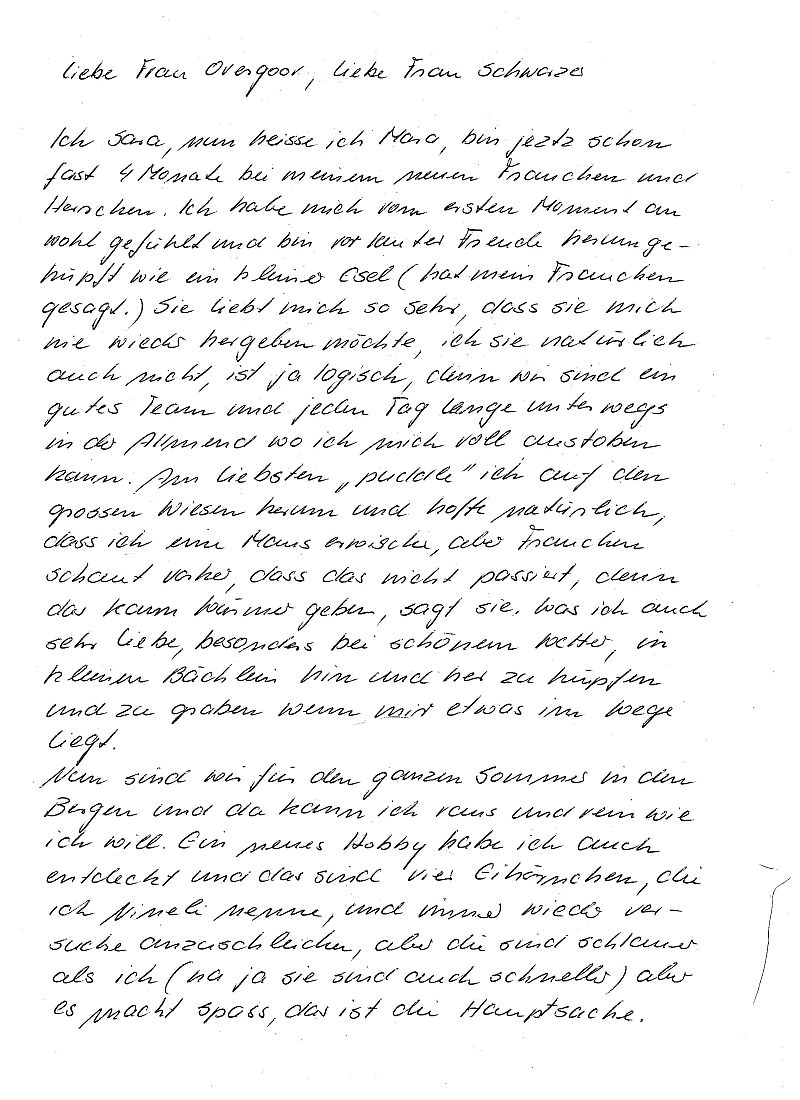 Liebe Frau Overgoor, liebe Frau Schwarzer
Ich Sara, nun heisse ich Mara, bin jetzt schon
fast 4 Monate bei meinem neuen Frauchen und
Herrchen. Ich habe mich vom ersten Moment an
wohl gefühlt und bin vor lauter Freude herumge-
hüpft wie ein kleiner Esel (hat mein Frauchen
gesagt.) Sie liebt mich so sehr, dass sie mich
nie wieder hergeben möchte, ich sie natürlich
auch nicht, ist ja logisch, denn wir sind ein
gutes Team und jeden Tag lange unterwegs
in der Allmend wo ich mich voll austoben
kann. Am liebsten „puddle" ich auf den
grossen Wiesen herum und hoffe natürlich,
dass ich eine Maus erwische, aber Frauchen
schaut vorher, dass das nicht passiert, denn
das kann Würmer geben, sagt sie. Was ich auch
sehr liebe, besonders bei schönem Wetter, in
kleinen Bächlein hin und her zu hüpfen
und zu graben wenn mir etwas im Wege
liegt.
Nun sind wir für den ganzen Sommer in den
Bergen und da kann ich raus und rein wie
ich will. Ein neues Hobby habe ich auch
entdeckt und das sind vier Eihörnchen, die
ich Nineli nenne, und immer wieder ver-
suche anzuschleichen, aber die sind schlauer
als ich (na ja sie sind auch schneller) aber
es macht spass, das ist die Hauptsache.